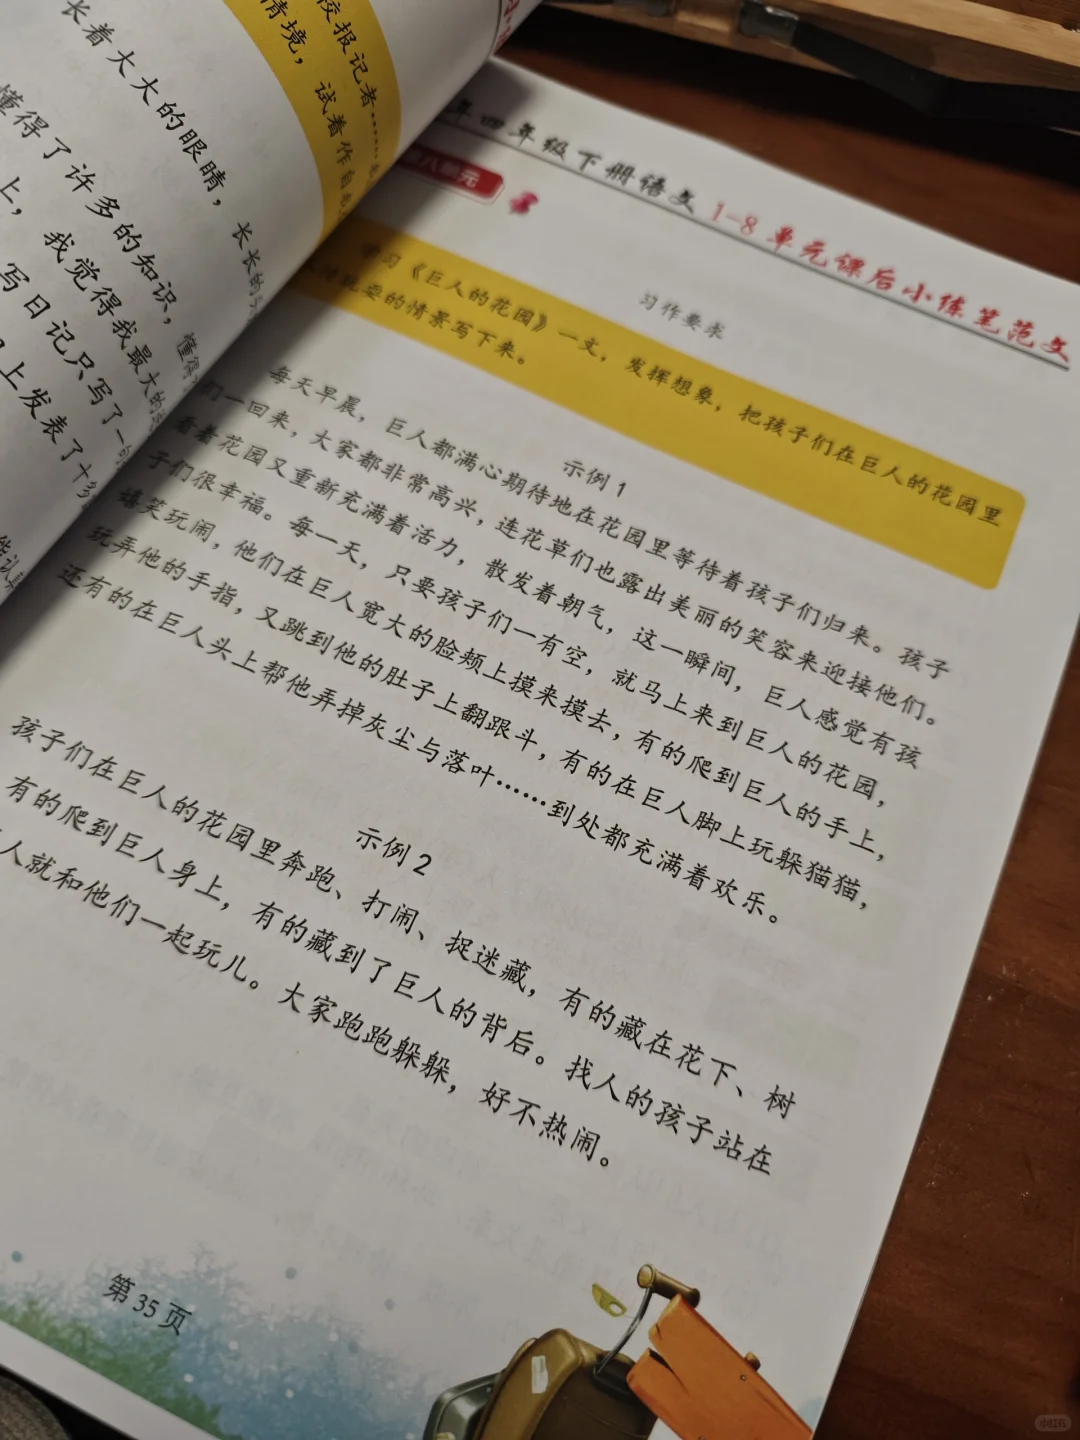 校报记者……
情境，试着作自我
长着大大的眼睛，长长的
懂得了许多的知识，懂得
上，我觉得我最大的
写日记只写了一句
上发表了十多
能认真
年四年级下册语文 1-8单元课后小练笔范文
八单元
习作要求
习《巨人的花园》一文，发挥想象，把孩子们在巨人的花园里
玩耍的情景写下来。
示例1
每天早晨，巨人都满心期待地在花园里等待着孩子们归来。孩子
们一回来，大家都非常高兴，连花草们也露出美丽的笑容来迎接他们。
看着花园又重新充满着活力，散发着朝气，这一瞬间，巨人感觉有孩
子们很幸福。每一天，只要孩子们一有空，就马上来到巨人的花园，
嬉笑玩闹，他们在巨人宽大的脸颊上摸来摸去，有的爬到巨人的手上，
玩弄他的手指，又跳到他的肚子上翻跟斗，有的在巨人脚上玩躲猫猫，
还有的在巨人头上帮他弄掉灰尘与落叶……到处都充满着欢乐。
示例2
孩子们在巨人的花园里奔跑、打闹、捉迷藏，有的藏在花下、树
有的爬到巨人身上，有的藏到了巨人的背后。找人的孩子站在
人就和他们一起玩儿。大家跑跑躲躲，好不热闹。
第35页